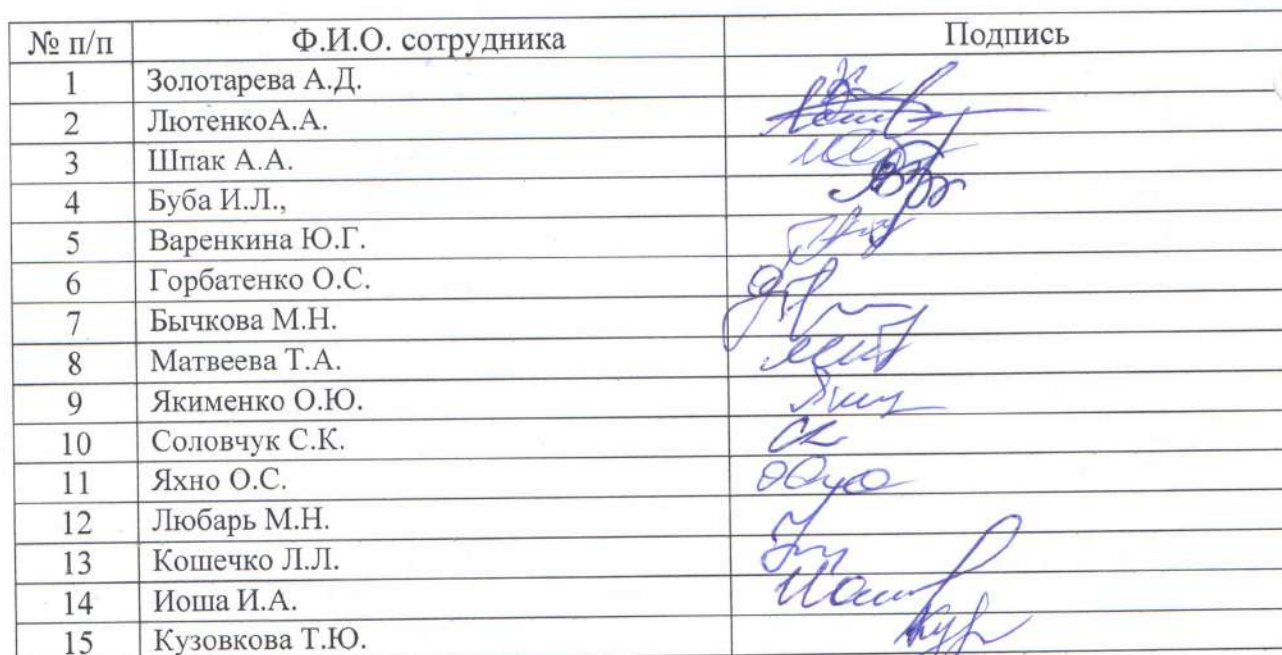 № п/п Ф.И.О. сотрудника Подпись
1 Золотарева А.Д.
2 ЛютенкоА.А.
3 Шпак А.А.
4 Буба И.Л.,
5 Варенкина Ю.Г.
6 Горбатенко О.С.
7 Бычкова М.Н.
8 Матвеева Т.А.
9 Якименко О.Ю.
10 Соловчук С.К.
11 Яхно О.С.
12 Любарь М.Н.
13 Кошечко Л.Л.
14 Иоша И.А.
15 Кузовкова Т.Ю.